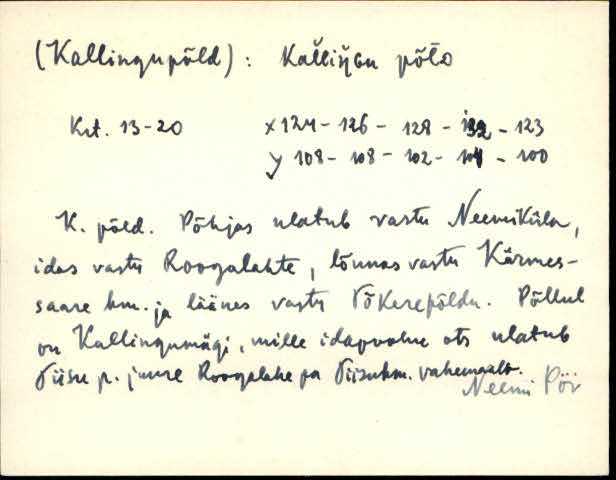 (Kallingupõld): Kallingu põld
Krt. 13-20 x 124 - 126 - 128 - 132 - 123
y 108 - 108 - 102 - 101 - 100
K. põld. Põhjas ulatub vastu Neemiküla,
idas vastu Roogalahte, lõunas vastu Kärmes-
saare hm. ja läänes vastu Tõkerepõldu. Põllul
on Kallingumägi, mille idapoolne ots ulatub
Tiisu p. juure Roogalahe ja Tiisuhm. vahemaalt.
Neemi Pöi